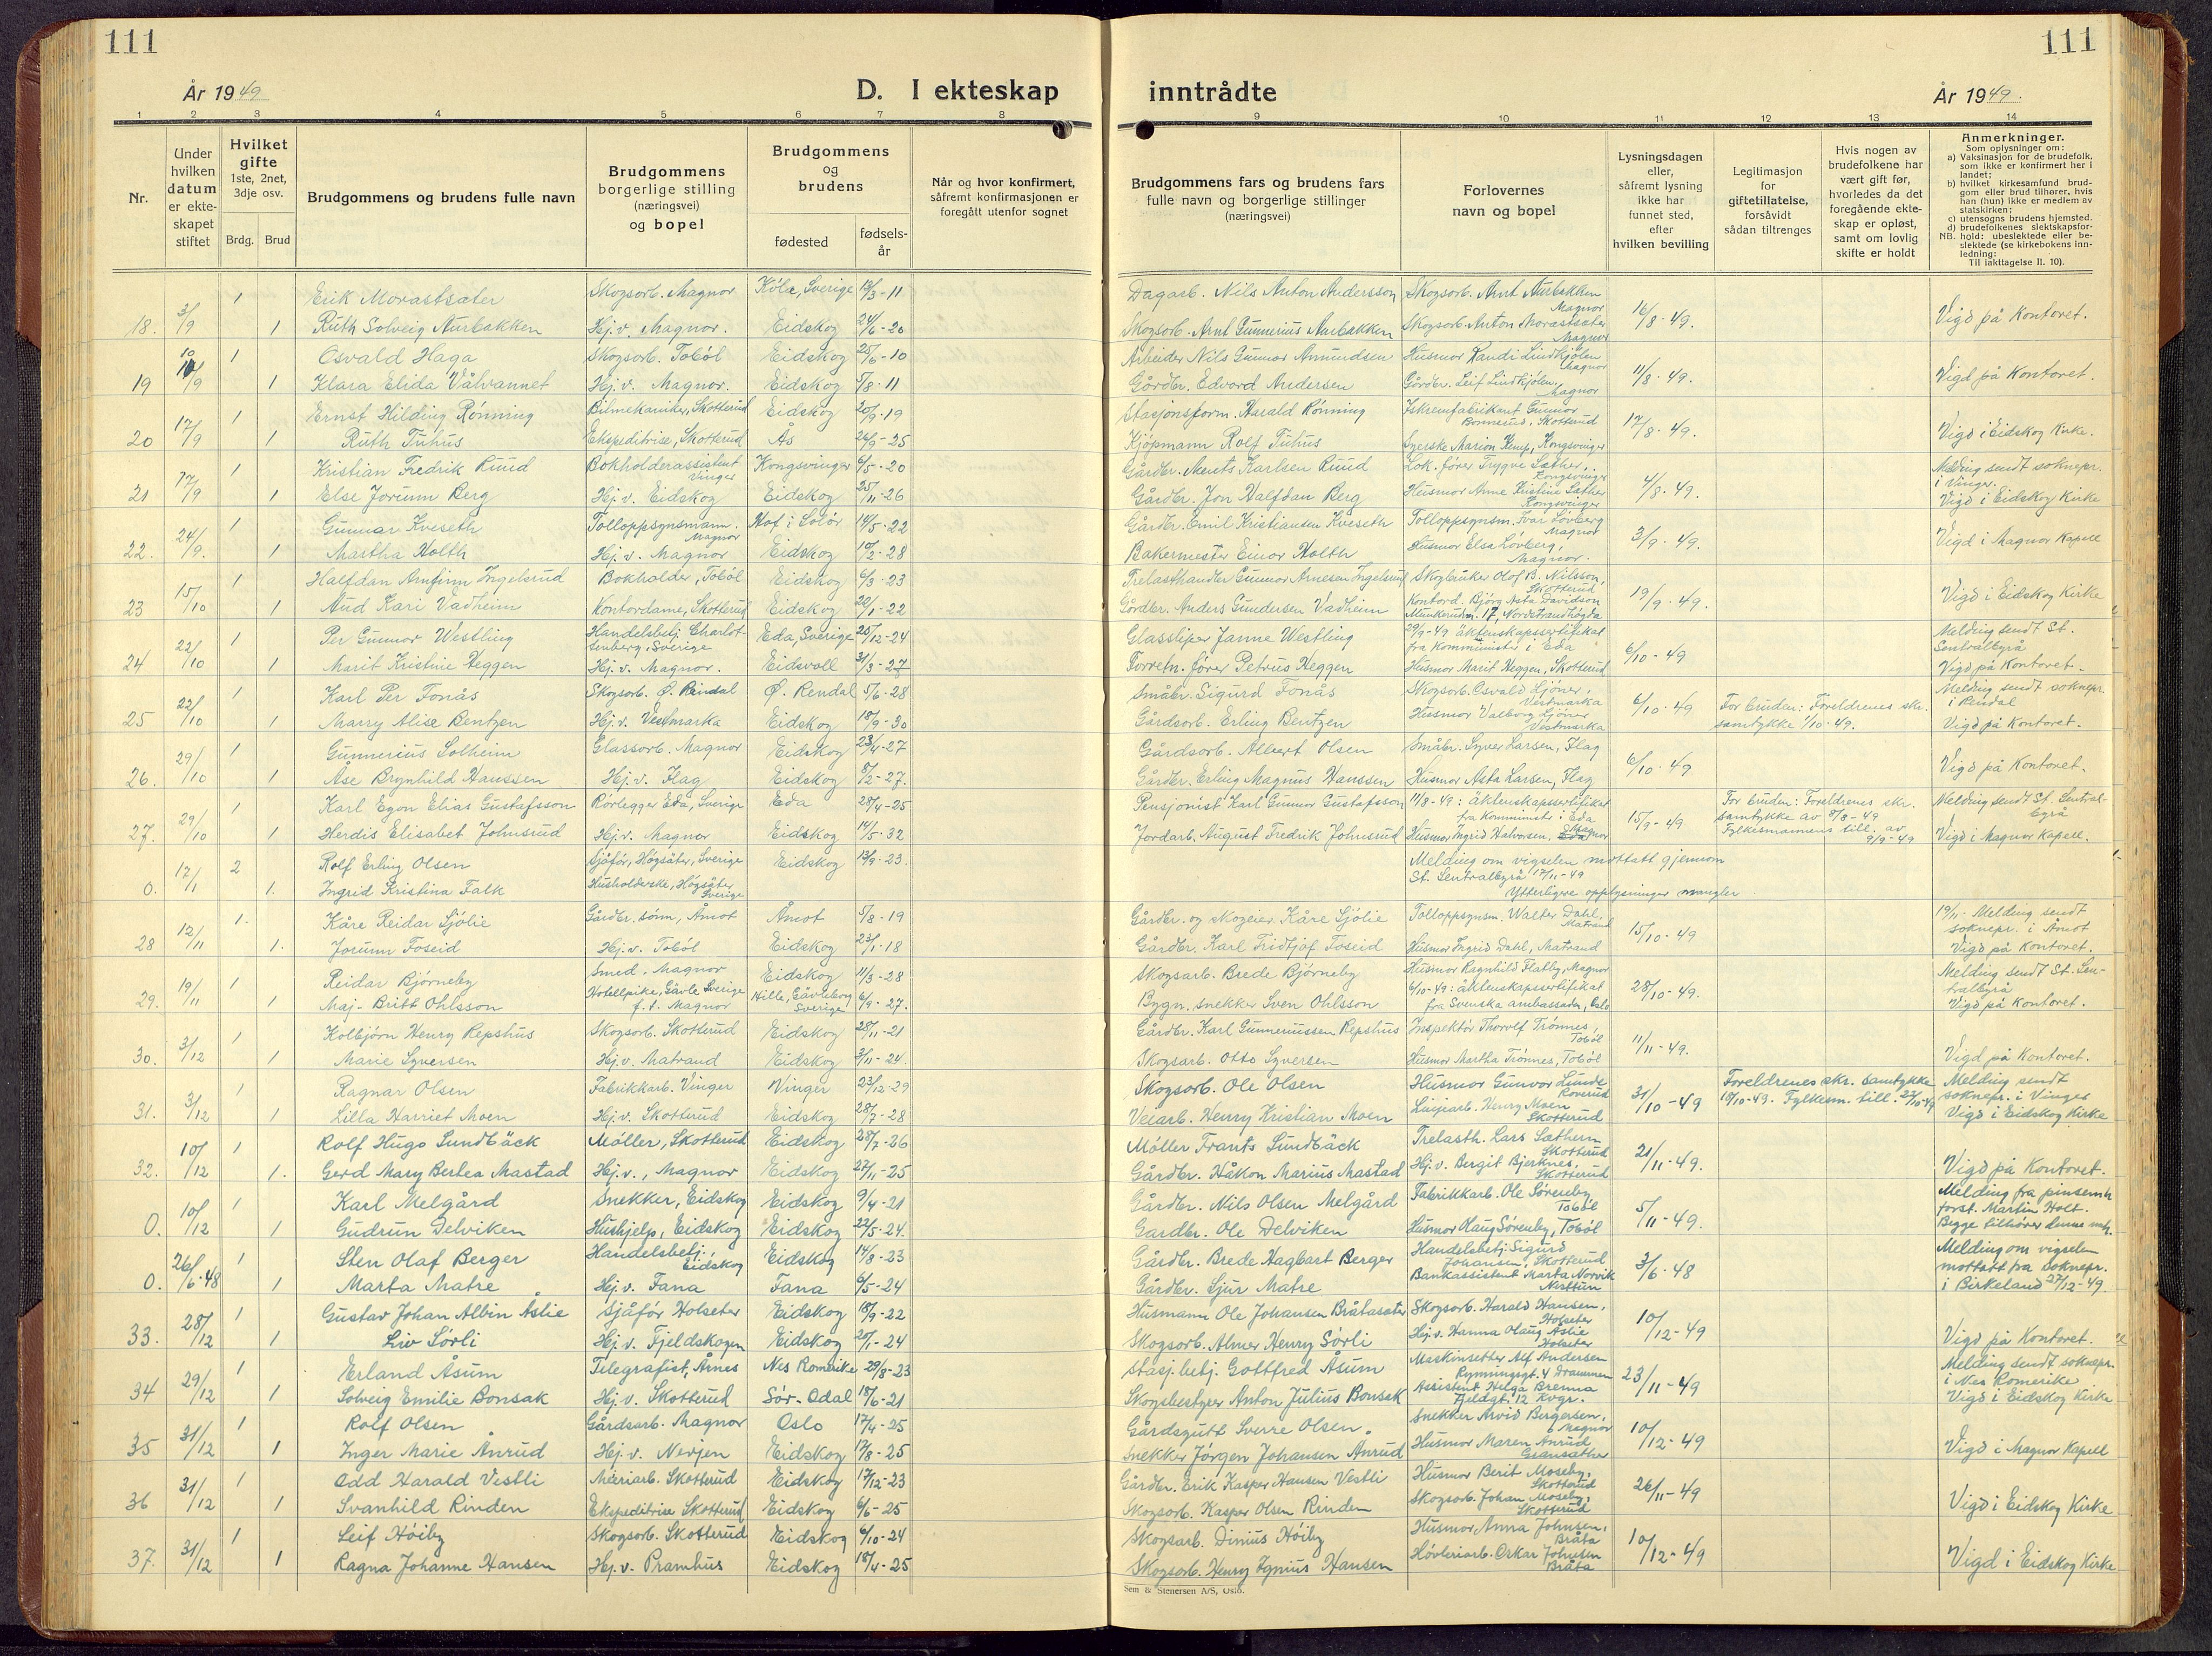 111
111
År 1949
D. I ekteskap
inntrådte
År 1949.
1 2 3 4 5 6 7 8 9 10 11 12 13 14
Nr.
Under hvilken datum er ekteskapet stiftet
Hvilket gifte 1ste, 2net, 3dje osv.
Brdg. Brud
Brudgommens og brudens fulle navn
Brudgommens borgerlige stilling (næringsvei) og bopel
Brudgommens og brudens
fødested
fødsels-år
Når og hvor konfirmert, såfremt konfirmasjonen er foregått utenfor sognet
Brudgommens fars og brudens fars fulle navn og borgerlige stillinger (næringsvei)
Forlovernes navn og bopel
Lysningsdagen eller, såfremt lysning ikke har funnet sted, efter hvilken bevilling
Legitimasjon for giftetillatelse, forsåvidt sådan tiltrenges
Hvis nogen av brudefolkene har vært gift før, hvorledes da det foregående ekteskap er opløst, samt om lovlig skifte er holdt
Anmerkninger.
Som oplysninger om:
a) Vaksinasjon for de brudefolk, som ikke er konfirmert her i landet;
b) hvilket kirkesamfund brudgom eller brud tilhører, hvis han (hun) ikke er medlem av statskirken;
c) utensogns brudens hjemsted.
d) brudefolkenes slektskapsforhold: ubeslektede eller beslektede (se kirkebokens innledning:
NB.
Til iakttagelse II. 10).
1 Erik Morastsæter Skogsarb. Magnor Köla, Sverige /3-11 Dagarb. Nils Anton Andersson Skogsarb. Arnt Aurbakken Magnor
18. 3/9 1 Ruth Solveig Aurbakken Hj.v. Magnor. Eidskog 24/6-20 Skogsarb. Arnt Gunnerius Aurbakken Skogsarb. Anton Morastsæter Magnor 16/8-49. Vigd på Kontoret.
10/9 1 Osvald Haga Skogsarb. Tobøl Eidskog 25/6-10 Arbeider Nils Gunnar Amundsen Husmor Randi Lindkjølen Magnor
19 1 Klara Elida Vålvannet Hj.v. Magnor. Eidskog 5/8-11 Gårdbr. Edvard Andersen Gårdbr. Leif Lindkjølen, Magnor 11/8-49. Vigd på Kontoret.
1 Ernst Hilding Rønning Bilmekaniker, Skotterud Eidskog 20/9-19 Stasjonsform. Harald Rønning Iskremfabrikant Gunnar Bonnerud, Skotterud
20 17/9 1 Ruth Tuhus Ekspeditrise, Skotterud Ås 26/3-25 Kjøpmann Rolf Tuhus Syerske Marion Kemp, Kongsvinger 17/8-49. Vigd i Eidskog Kirke.
1 Kristian Fredrik Ruud Bokholderassistent Vinger Kongsvinger 6/5-20 Gårdbr. Ments Karlsen Ruud Lok.fører Trygve Sæther, Kongsvinger Melding sendt soknepr. i Vinger.
21 17/9 1 Else Jorunn Berg Hj.v. Eidskog Eidskog 25/11-26 Gårdbr. Jon Halfdan Berg Husmor Anne Kristine Sæther Kongsvinger 4/8-49. Vigd i Eidskog Kirke
1 Gunnar Kveseth Tolloppsynsmann. Magnor Hof i Solør 14/5-22 Gårdbr. Emil Kristiansen Kveseth Tolloppsynsm. Ivar Løvberg Magnor
22. 24/9. 1 Martha Holth Hj.v. Magnor Eidskog 19/2-28 Bakermester Einar Holth Husmor Elsa Løvberg, Magnor. 3/9-49. Vigd i Magnor Kapell
1 Halfdan Arnfinn Ingelsrud Bokholder, Tobøl Eidskog 6/3-23 Trelasthandler Gunnar Arnesen Ingelsrud Skogbruker Olof B. Nilsson, Skotterud
23 15/10 1 Aud Kari Vadheim Kontordame, Skotterud Eidskog 22/1-22 Gårdbr. Anders Gundersen Vadheim Kontord. Bjørg Asta Davidson Munkerudv. 17, Nordstrandhøgda 19/9-49. Vigd i Eidskog Kirke
1 Per Gunnar Westling Handelsbetj. Charlottenberg, Sverige Eda, Sverige 20/12-24 Glassliper Janne Westling 29/9-49 äktenskapssertifikat fra Kommunister i Eda Melding sendt St. Sentralbyrå
24 22/10 1 Marit Kristine Heggen Hj.v. Magnor. Eidsvoll 31/3-27 Forretn. fører Petrus Heggen Husmor Marit Heggen, Skotterud 6/10-49 Vigd på Kontoret.
1 Karl Per Fonås Skogsarb. Ø. Rendal Ø. Rendal 5/6-28 Småbr. Sigurd Fonås Skogsarb. Osvald Ljøner, Vestmarka Melding sendt soknepr. i Rendal
25 22/10 1 Marry Alise Bentzen Hj.v. Vestmarka Eidskog 18/9-30 Gårdsarb. Erling Bentzen Husmor Valborg Ljøner Vestmarka 6/10-49 For bruden: Foreldrenes skr. samtykke 1/10-49. Vigd på Kontoret.
1 Gunnerius Solheim Glassarb. Magnor Eidskog 23/4-27 Gårdsarb. Albert Olsen Småbr. Syver Larsen, Flag
26. 29/10 1 Åse Brynhild Hanssen Hj.v. Flag Eidskog 8/2-27. Gårdbr. Erling Magnus Hanssen Husmor Asta Larsen, Flag 6/10-49 Vigd på Kontoret.
1 Karl Egon Elias Gustafsson Rørlegger Eda, Sverige Eda 28/4-25 Pensjonist Karl Gunnar Gustafsson 11/8-49: äktenskapssertifikat fra Kommunists i Eda For bruden: Foreldrenes skr. samtykke av 8/8-49 Melding sendt St. Sentralbyrå
27. 29/10 1 Herdis Elisabet Johnsrud Hj.v. Magnor Eidskog 14/5-32 Jordarb. August Fredrik Johnsrud Husmor Ingrid Halvorsen, Magnor 15/9-49 Fylkesmannens till. av 9/9-49 Vigd i Magnor Kapell.
2 Rolf Erling Olsen Sjåfør, Högsäter, Sverige Eidskog 13/9-23. Melding om vigselen mottatt gjennom St. Sentralbyrå 17/11-49
0. 17/1 1. Ingrid Kristina Falk Husholderske, Högsäter Sverige Ytterligere opplysninger mangler
1. Kåre Reidar Sjølie Gårdbr. sønn, Åmot Åmot 5/8-19 Gårdbr. og skogeier Kåre Sjølie Tolloppsynsm. Walter Dahl, Matrand 19/11-Melding sendt soknepr. i Åmot
28 12/11 1. Jorunn Foseid Hj.v. Tobøl Eidskog 23/1-18 Gårdbr. Karl Fridtjof Foseid Husmor Ingrid Dahl, Matrand 15/10-49 Vigd på Kontoret.
1 Reidar Bjørneby Smed, Magnor Eidskog 11/3-28 Skogsarb. Brede Bjørneby Husmor Ragnhild Flatby, Magnor Melding sendt St. Sentralbyrå
29. 19/11 1 Maj-Britt Ohlsson Hotellpike, Gävle Sverige f.t. Magnor Hille, Gävleborg Sverige 6/9-27. Bygn. snekker Sven Ohlsson 6/10-49: äktenskapssertifikat fra Svenska ambassaden, Oslo 28/10-49. Vigd på Kontoret.
1 Kolbjørn Henry Repshus Skogsarb. Skotterud Eidskog 28/11-21 Gårdbr. Karl Gunneriussen Repshus Inspektør Thorolf Trønnes, Tobøl
30. 3/12 1 Marie Syversen Hj.v. Matrand Eidskog 3/11-24. Skogsarb. Otto Syversen Husmor Martha Trønnes, Tobøl 11/11-49. Vigd på Kontoret.
1 Ragnar Olsen Fabrikkarb. Vinger Vinger 23/12-29 Skogsarb. Ole Olsen Husmor Gunvor Lunde Foreldrenes skr. samtykke Melding sendt soknepr. i Vinger
31. 3/12 1 Lilla Harriet Moen Hj.v. Skotterud Eidskog 28/7-28 Veiarb. Henry Kristian Moen Linjearb. Henry Moen Skotterud 31/10-49 19/10-49. Fylkesm. till. 22/10-49 Vigd i Eidskog Kirke
1 Rolf Hugo Sundbäck Møller, Skotterud Eidskog 28/7-26 Møller Frants Sundbäck Trelasth. Lars Sæthern Skotterud
32. 10/12 1. Gerd Mary Berlea Mastad Hj.v., Magnor Eidskog 27/1-25 Gårdbr. Håkon Marius Mastad Hj.v. Bergit Bjerknes, Skotterud 21/11-49. Vigd på Kontoret.
1 Karl Melgård Snekker, Eidskog Eidskog 9/4-21 Gårdbr. Nils Olsen Melgård Fabrikkarb. Ole Sørenby Tobøl Melding fra pinsemh. forst. Martin Holt.
0. 10/12 1 Gudrun Delviken Hushjelp, Eidskog Eidskog 22/5-24. Gardbr. Ole Delviken Husmor Haug Sørenby, Tobøl 5/11-49. Begge tilhører denne meh.
1 Sten Olaf Berger Handelsbetj., Eidskog Eidskog 14/8-23 Gårdbr. Brede Hagbart Berger Handelsbetj. Sigurd Johansen, Skotterud Melding om vigselen mottatt fra soknepr.
0. 26/6-48 1 Marta Matre Hj.v. Fana Fana 6/5-24 Gårdbr. Sjur Matre Bankassistent Marta Norvik Nesttun 3/6-48 i Birkeland 27/12-49.
1 Gustav Johan Albin Åslie Sjåfør Holseter Eidskog 18/9-22 Husmann Ole Johansen Bråtasæter Skogsarb. Harald Hansen, Holseter
33. 28/12 1 Liv Sørli Hj.v. Fjeldskogen Eidskog 20/1-24 Skogsarb. Almer Henry Sørli Hj.v. Hanna Olaug Åslie Holseter 10/12-49 Vigd på Kontoret.
1 Erland Åsum Telegrafist, Årnes Nes Romerike 29/8-23 Stasj.betj. Gottfred Åsum Maskinsetter Alf Andersen Rynningsgt. 4 Drammen Melding sendt soknepr. i Nes Romerike
34 29/12 1 Solveig Emilie Bonsak Hj.v. Skotterud Sør-Odal 18/6-21 Skogsbestyrer Anton Julius Bonsak Assistent Helga Brenna Fjeldgt. 12 Kvgr. 23/11-49 Vigd i Eidskog Kirke
1 Rolf Olsen Gårdsarb. Magnor Oslo 17/4-25 Gårdsgutt Sverre Olsen Snekker Arvid Bergersen, Magnor
35 31/12 1 Inger Marie Ånrud Hj.v. Nevjen Eidskog 17/8-25 Snekker Jørgen Johansen Ånrud Husmor Maren Ånrud Gansæther 10/12-49 Vigd i Magnor Kapell
1 Odd Harald Vestli Meieriarb. Skotterud Eidskog 17/12-23 Gårdbr. Erik Kasper Hansen Vestli Husmor Berit Moseby, Skotterud
36 31/12 1 Svanhild Rinden Ekspeditrise Skotterud Eidskog 6/1-25 Skogsarb. Kasper Olsen Rinden Skogsarb. Johan Moseby, Skotterud 26/11-49 Vigd i Eidskog Kirke
1 Leif Høiby Skogsarb. Skotterud Eidskog 6/10-24 Skogsarb. Dinius Høiby Husmor Anna Johnsen, Bråta
37. 31/12 1 Ragna Johanne Hansen Hj.v. Pramhus Eidskog 18/4-25 Skogsarb. Henry Hansen Høvleriarb. Oskar Johnsen Bråta 10/12-49 Vigd i Eidskog Kirke
Sem & Stenersen A/S, Oslo.